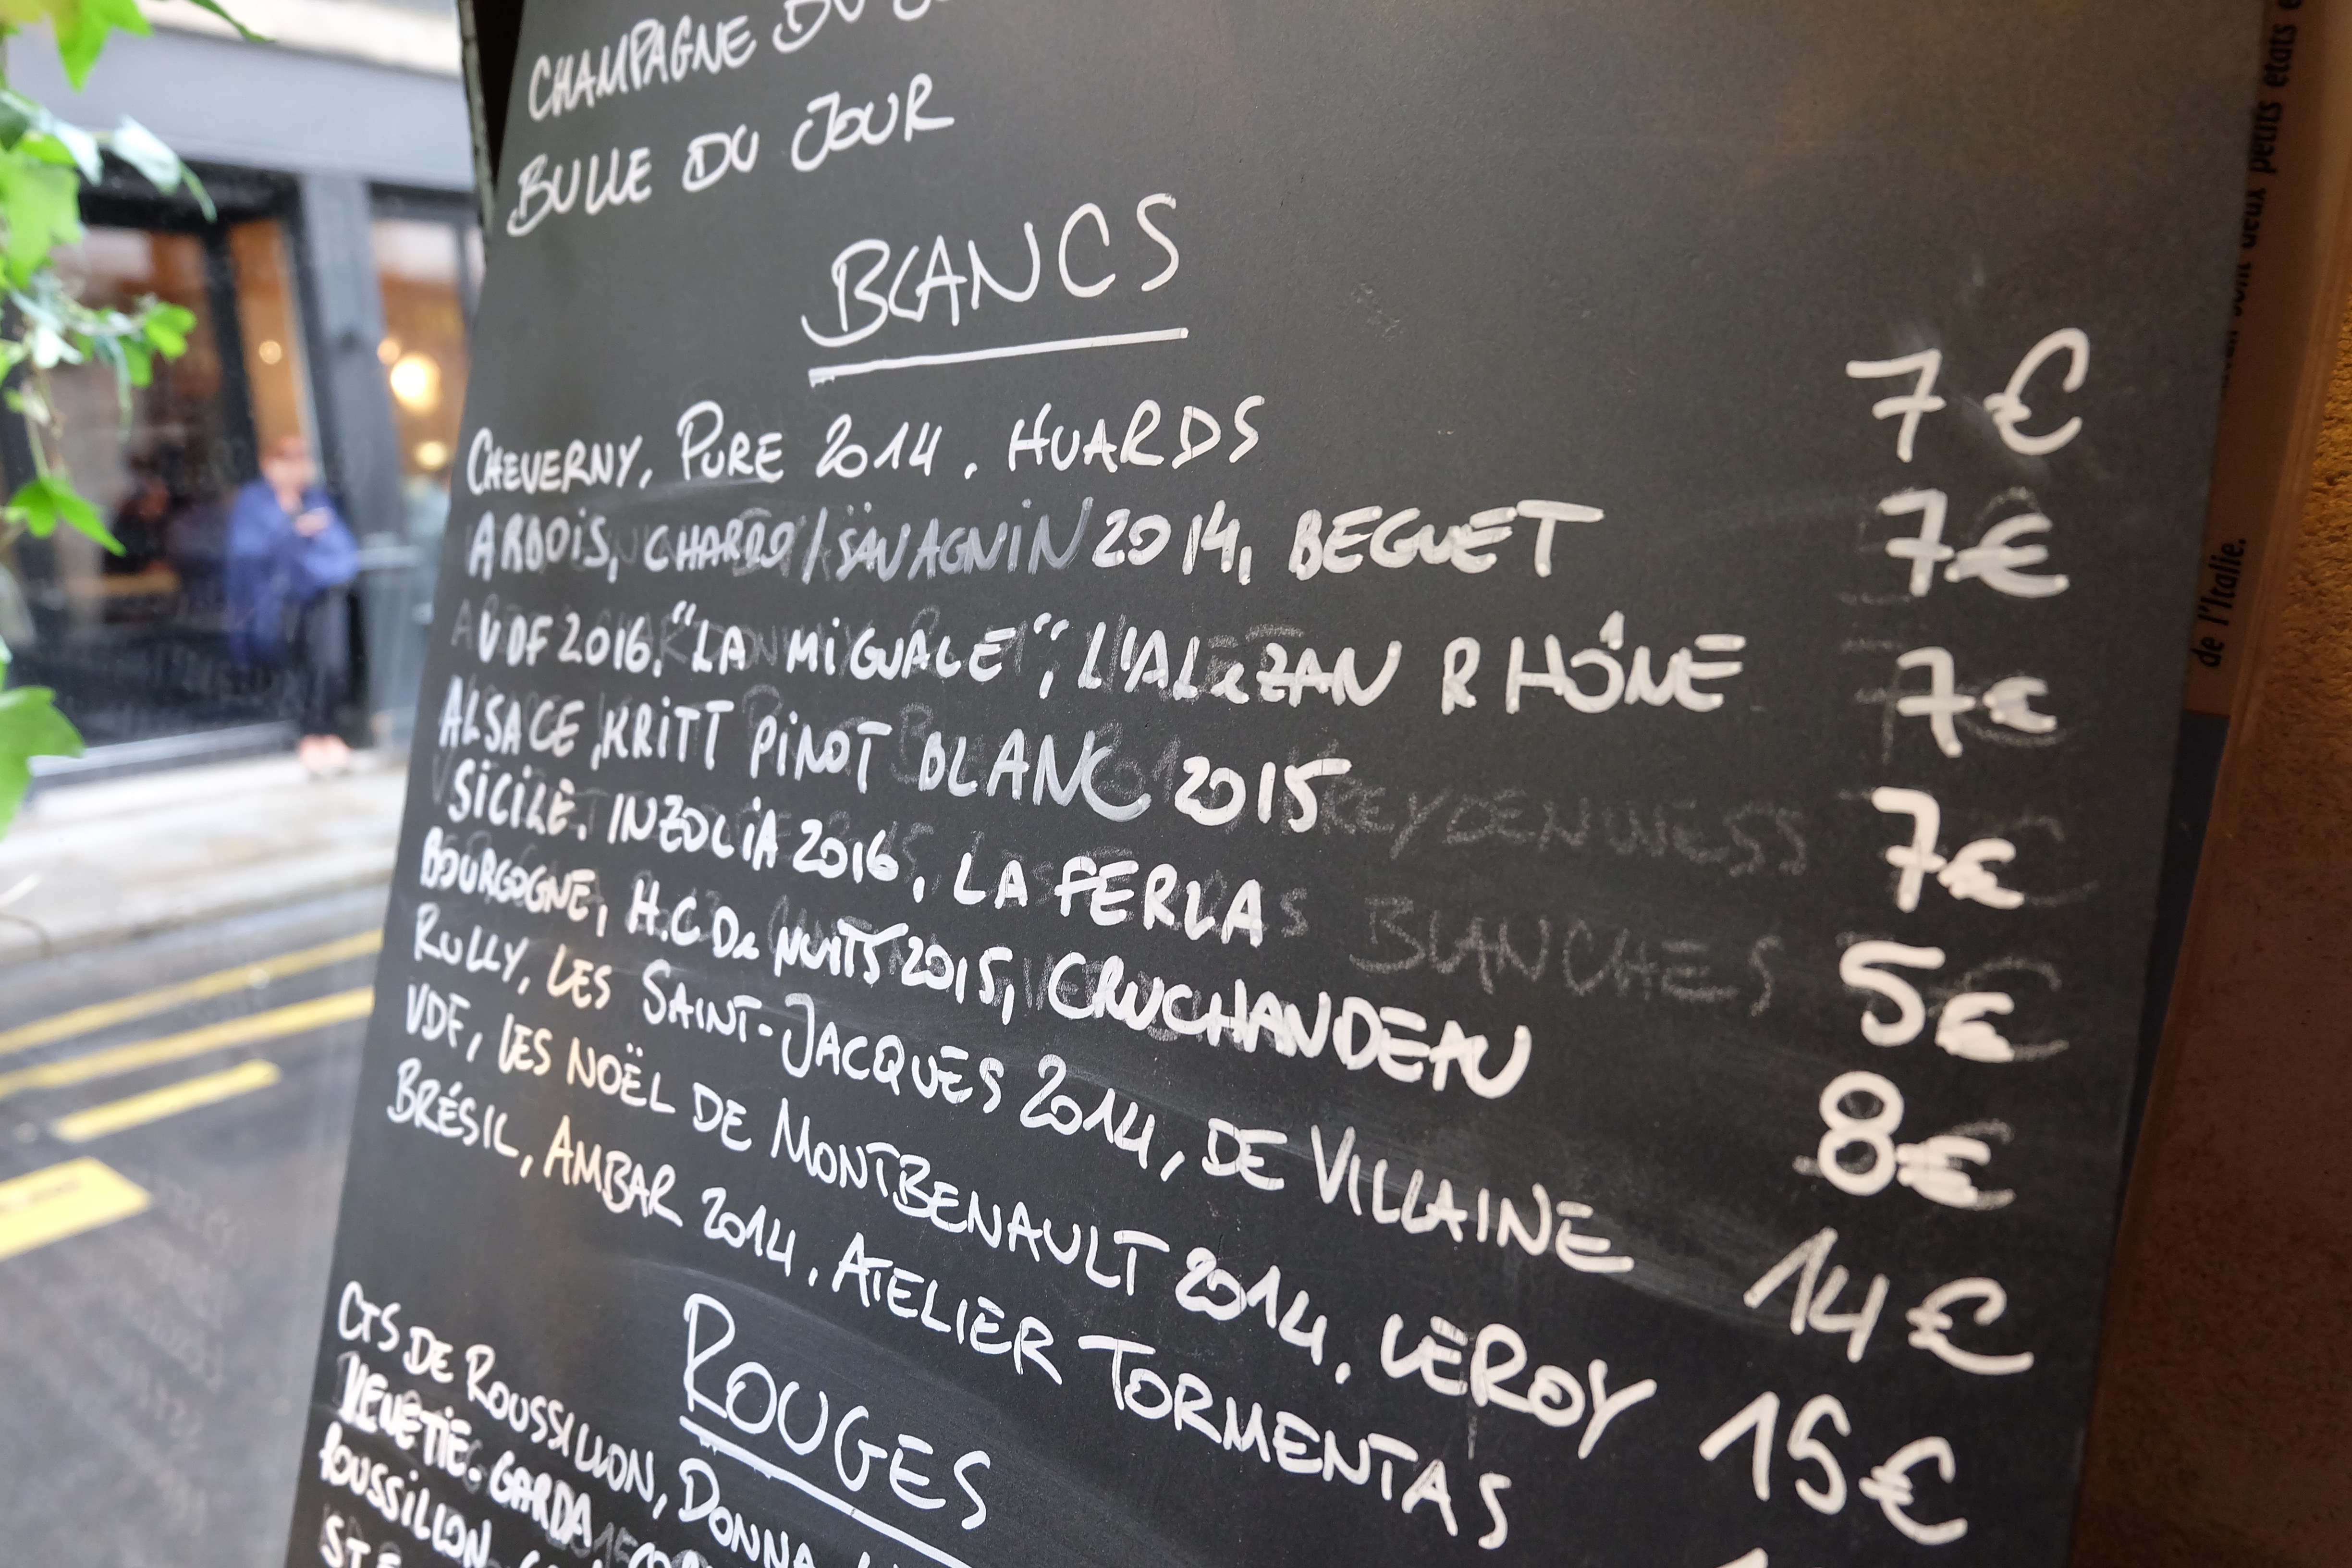 CHAMPAGNE DU
BULLE DU JOUR
BLANCS
CHEVERNY, PURE 2014. HUARDS 7€
ARBOIS, CHARDO/SAVAGNIN 2014, BEGUET 7€
VDF 2016. "LA MIGUALE", L'ALEZAN RHÔNE 7€
ALSACE, KRITT PINOT BLANC 2015 7€
SICILE. INZOLIA 2016, LA FERLA 5€
BOURGOGNE, H.C DE NUITS 2015, CRUCHANDEAU 8€
RULLY, LES SAINT-JACQUES 2014, DE VILLAINE 14€
VDF, LES NOËL DE MONTBENAULT 2014. LEROY 15€
BRÉSIL, AMBAR 2014. ATELIER TORMENTAS
ROUGES
CTS DE ROUSSILLON, DONNA
VENETIE. GARDA
ROUSSILLON
ST
deux petits états
de l'Italie.